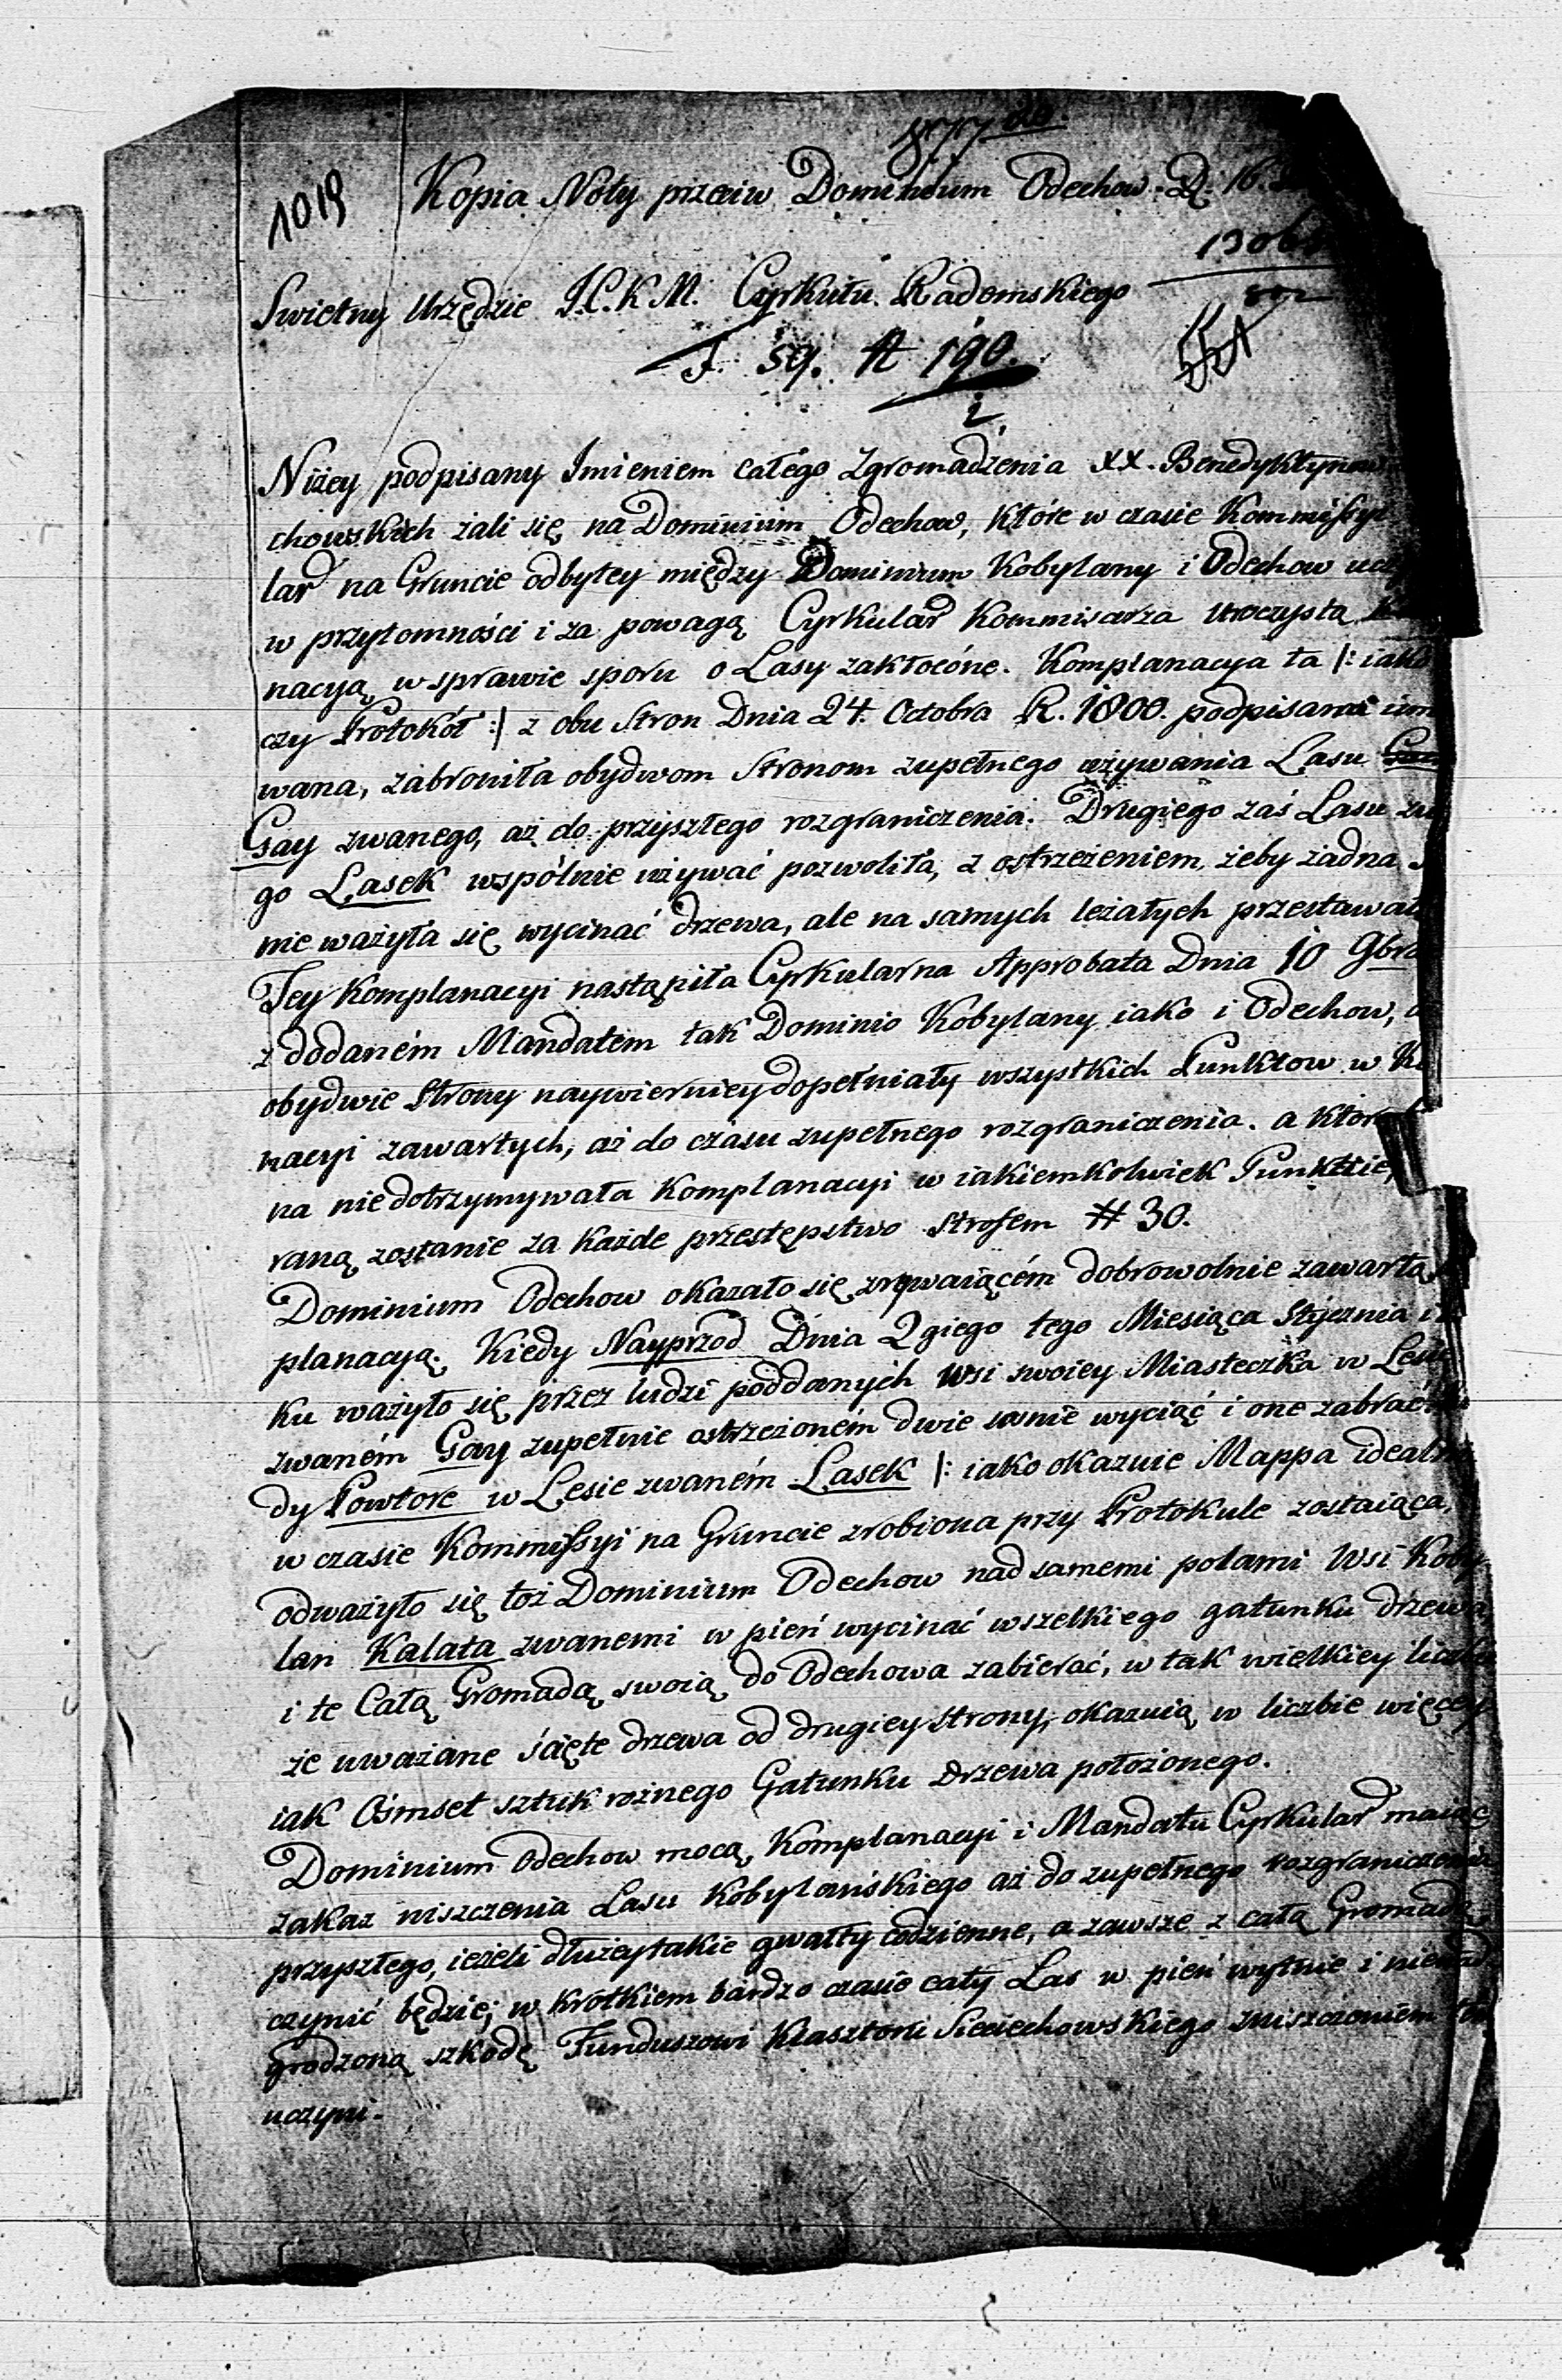 877
1019
Kopia Noty przeciw Dominium Odechow. D. 16.
Swietny Urzędzie I.C.K.M. Cyrkułu Radomskiego
F. 59. A 190.
2
551
Niżey podpisany Imieniem całego Zgromadzenia XX. Benedyktynow
chowskich żali się na Dominium Odechow, które w czasie Kommissyi
lar na Gruncie odbytey między Dominium Kobylany i Odechow
w przytomności i za powagą Cyrkular Kommisarza uroczystą
nacyą w sprawie sporu o Lasy zakłocone. Komplanacya ta |: iako
czy Protokół :| z obu Stron Dnia 24. Octobra R. 1800. podpisana
wana, zabroniła obydwom Stronom zupełnego używania Lasu
Gay zwanego, aż do przyszłego rozgraniczenia. Drugiego zaś Lasu
go Lasek wspólnie używać pozwoliła, z ostrzeżeniem, żeby żadna
nie ważyła się wycinać drzewa, ale na samych leżałych przestawała
Tey Komplanacyi nastąpiła Cyrkularna Approbata Dnia 10 9bra
z dodaném Mandatem tak Dominio Kobylany iako i Odechow,
obydwie Strony naywierniey dopełniały wszystkich Punktow w
nacyi zawartych, aż do czasu zupełnego rozgraniczenia. a
na niedotrzymywała Komplanacyi w iakiemkolwiek Punktcie,
raną zostanie za każde przestępstwo Strofem # 30.
Dominium Odechow okazało się zrywaiącém dobrowolnie zawartą
planacyą. Kiedy Nayprzod Dnia 2giego tego Miesiąca Stycznia i
ku ważyło się przez ludzi poddanych Wsi swoiey Miasteczka w Lesie
zwaném Gay zupełnie ostrzeżoném dwie sosnie wyciąć i one zabrać
dy Powtore w Lesie zwaném Lasek |: iako okazuie Mappa idealna
w czasie Kommissyi na Gruncie zrobiona przy Protokule zostaiąca,
odważyło się toż Dominium Odechow nad samemi polami Wsi Koby
lan Kalata zwanemi w pień wycinać wszelkiego gatunku drzewa,
i te Całą Gromadą swoią do Odechowa zabierać, w tak wielkiey liczbie
że uważane ścięte drzewa od drugiey Strony, okazuią w liczbie więcey
iak Ośmset sztuk rożnego Gatunku Drzewa położonego.
Dominium Odechow mocą Komplanacyi i Mandatu Cyrkular maiąc
zakaz niszczenia Lasu Kobylańskiego aż do zupełnego rozgraniczenia
przyszłego, ieżeli dłużey takie gwałty codzienne, a zawsze z całą Gromadą
czynić będzie; w krotkiem bardzo czasie cały Las w pień wytnie i nienad
grodzoną szkodę Funduszowi Klasztoru Sieciechowskiego zniszczeniem
uczyni.